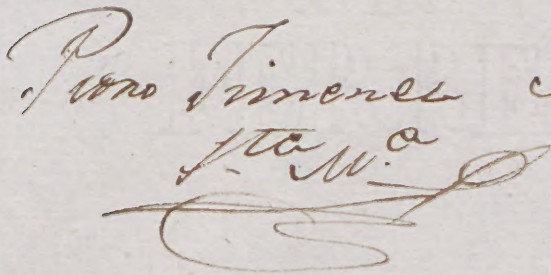 Primo Jimenez
Sta M.a